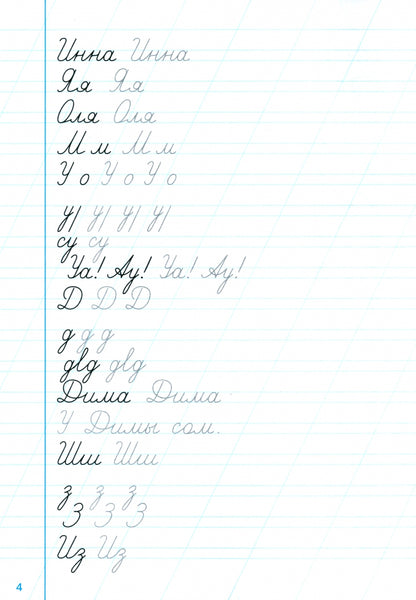 Инна Инна
Яя Яя
Оля Оля
М м М м
У о У о У о
у| у| у| у|
су су
Уа! Ау! Уа! Ау!
Д Д Д
д д д
дид дид
Дима Дима
У Димы сом.
Шш Шш
з з з
З З З
Из Из
4